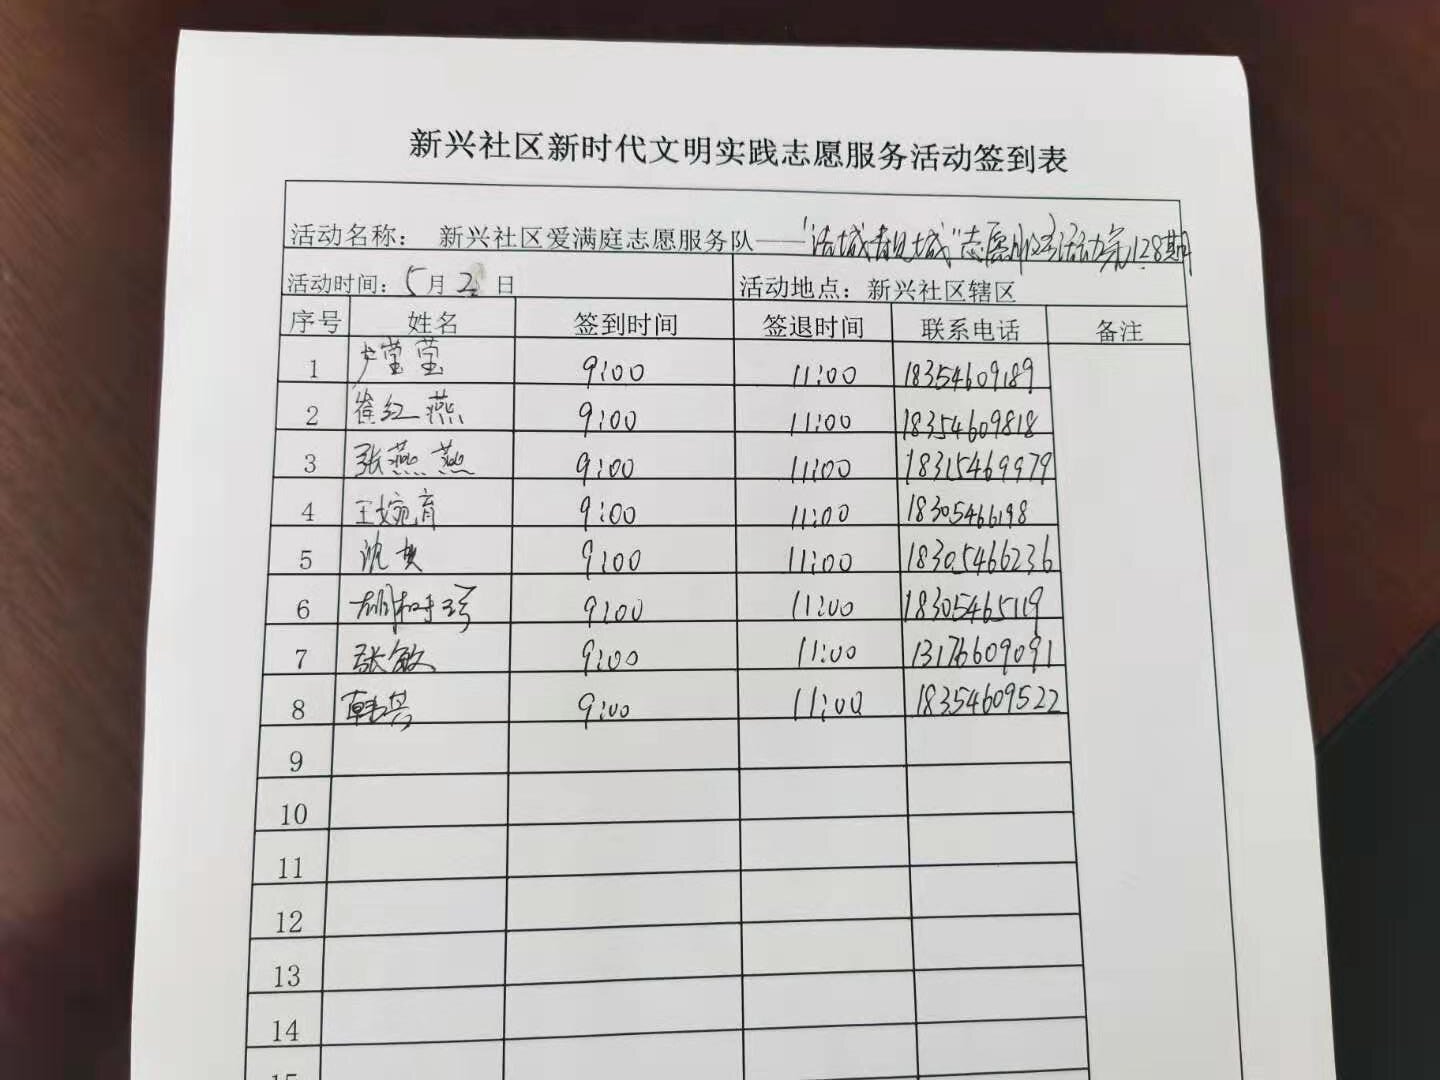 新兴社区新时代文明实践志愿服务活动签到表
活动名称： 新兴社区爱满庭志愿服务队——"洁城靓城"志愿服务活动第128期
活动时间：5月2日 活动地点：新兴社区辖区
序号 姓名 签到时间 签退时间 联系电话 备注
1 莹莹 9:00 11:00 18354609189
2 崔红燕 9:00 11:00 18354609818
3 张燕燕 9:00 11:00 18315469979
4 王婉育 9:00 11:00 18305466198
5 沈 9:00 11:00 18305466236
6 胡树珍 9:00 11:00 18305465119
7 张敏 9:00 11:00 13176609091
8 韩 9:00 11:00 18354609522
9
10
11
12
13
14
15